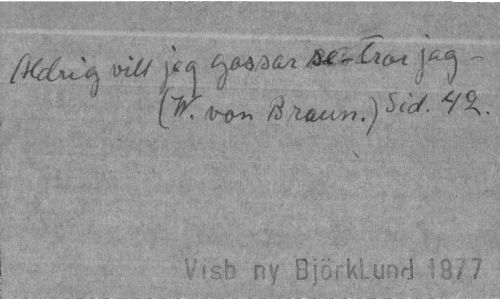 Aldrig vill jag gossar se - tror jag -
(W. von Braun.) Sid. 42.
Visb ny BjörkLund 1877